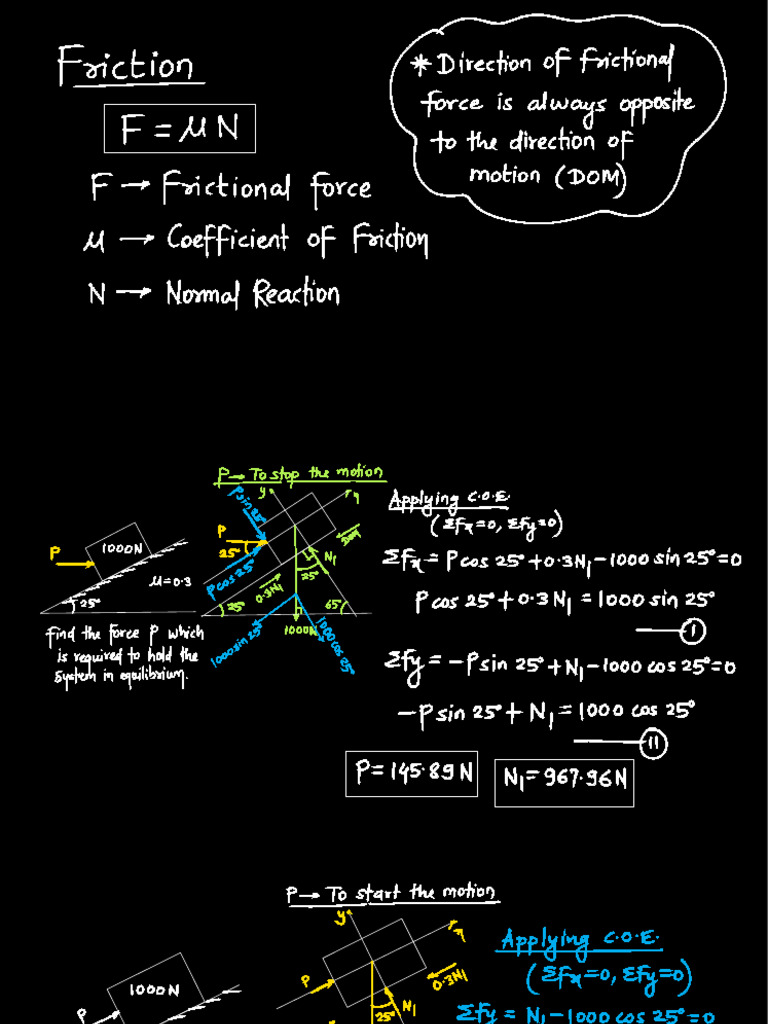 Friction
F = μN
F → Frictional force
μ → Coefficient of Friction
N → Normal Reaction
* Direction of frictional
force is always opposite
to the direction of
motion (DOM)
P → To stop the motion
P
1000N
μ = 0.3
25°
find the force P which
is required to hold the
system in equilibrium.
y
x
P sin 25°
P
25°
P cos 25°
DOM
N₁
25°
0.3N₁
25°
65°
1000N
1000 sin 25°
1000 cos 25°
Applying C.O.E.
(Σfx=0, Σfy=0)
Σfx = P cos 25° + 0.3N₁ - 1000 sin 25° = 0
P cos 25° + 0.3N₁ = 1000 sin 25°
I
Σfy = -P sin 25° + N₁ - 1000 cos 25° = 0
-P sin 25° + N₁ = 1000 cos 25°
II
P = 145.89 N
N₁ = 967.96 N
P → To start the motion
1000N
P
y
x
P
0.3N₁
N₁
25°
Applying C.O.E.
(Σfx=0, Σfy=0)
Σfy = N₁ - 1000 cos 25° = 0